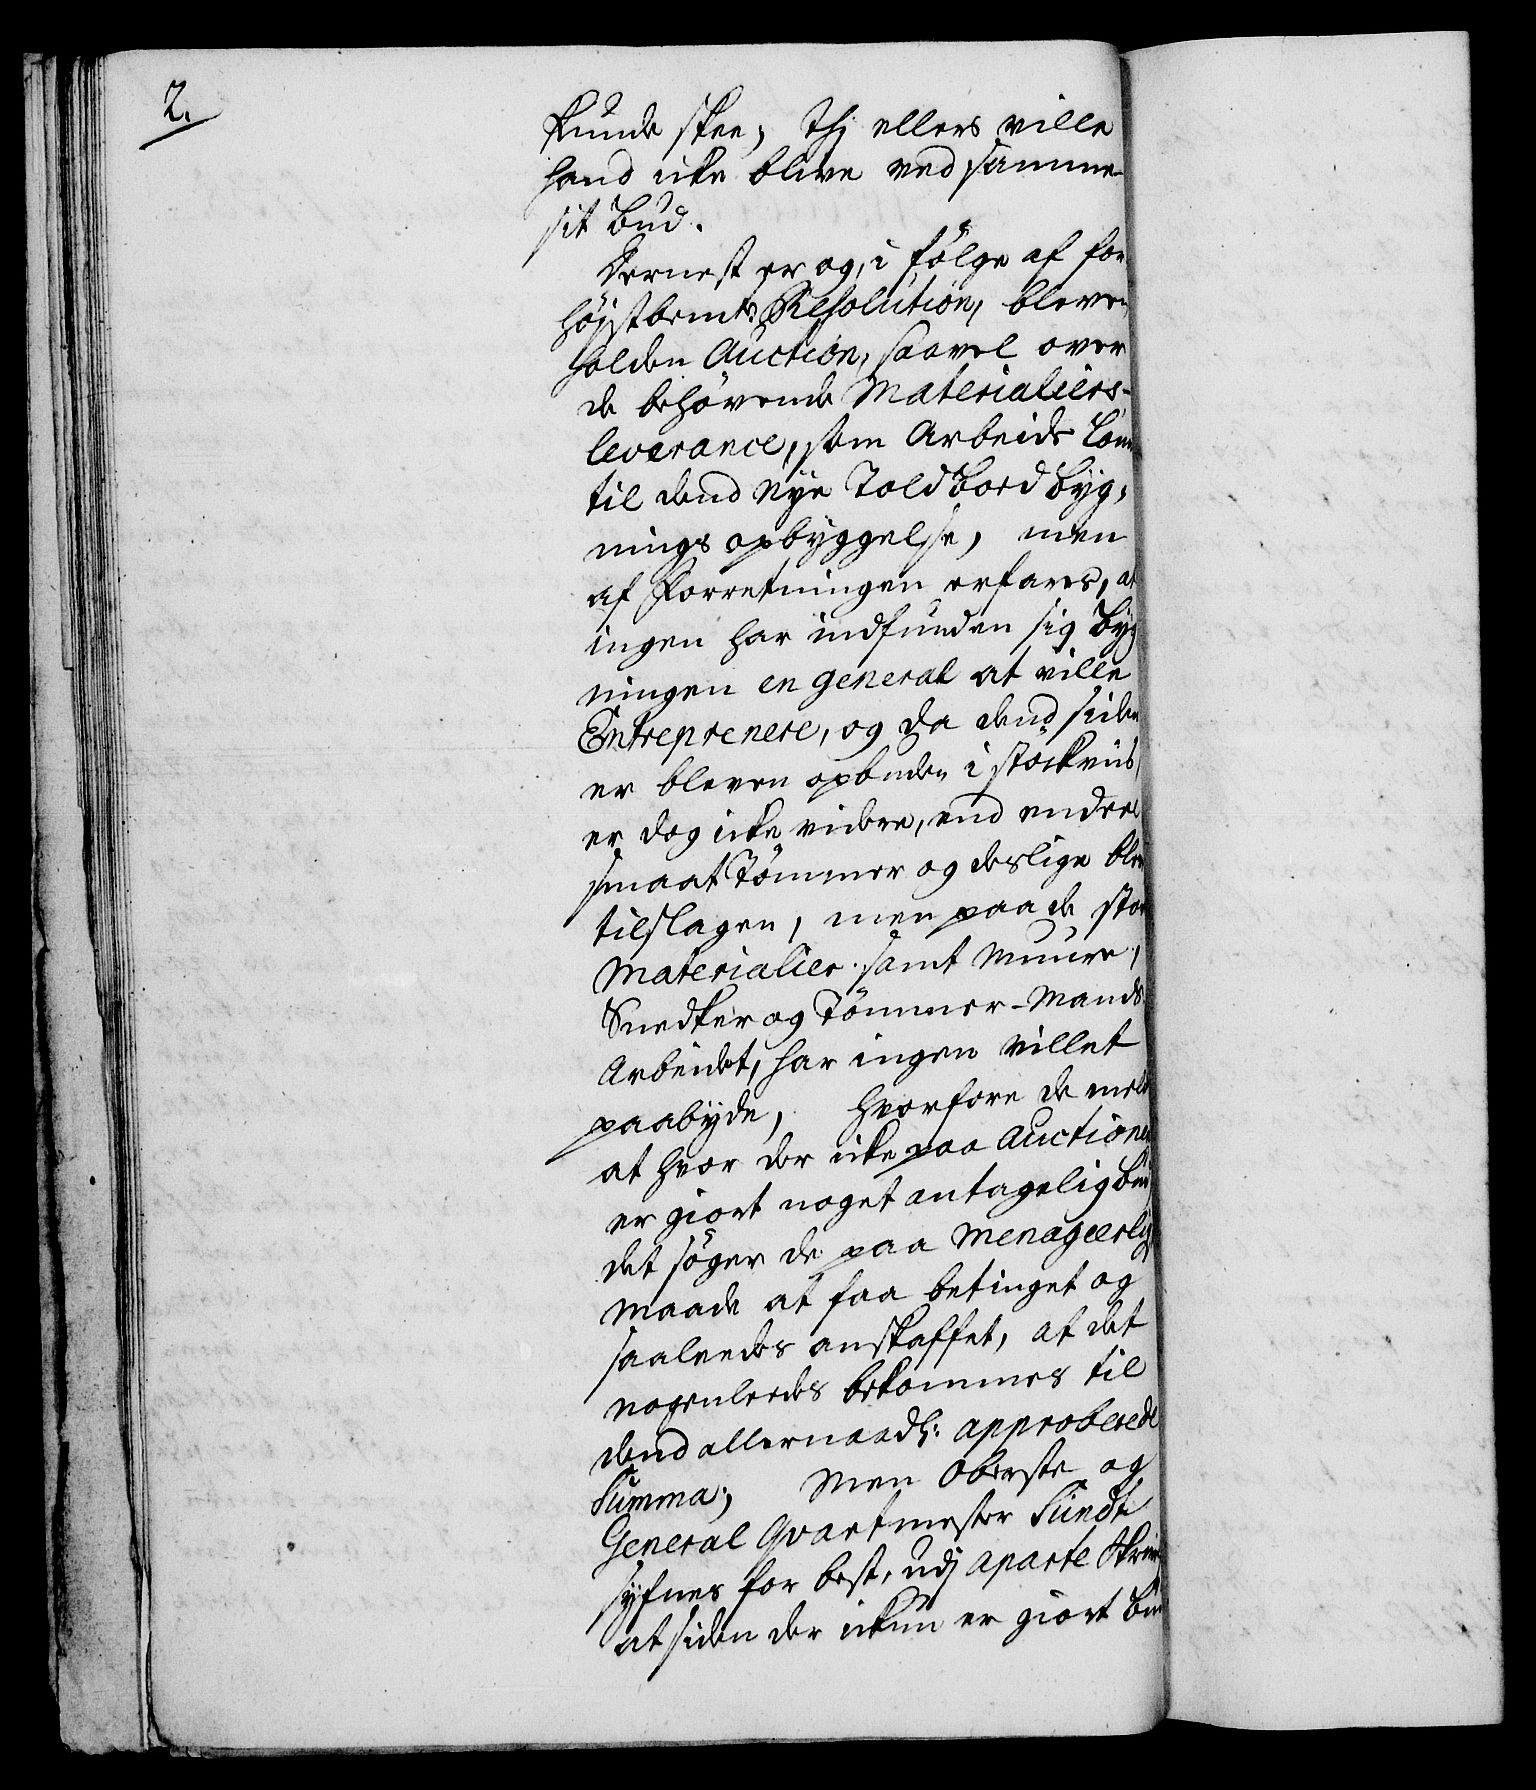 2.
kunde skee; thi ellers ville
hand icke blive ved samme
sit bud.
Dernest er og, i fölge af for
höjstbemte Resolution, bleven
holden Auction, saavel over
de behövende Materialiers-
leverance, som Arbeids Lön
til dend nye Toldbord byg-
nings opbyggelse, men
af Forretningen erfares, at
ingen har indfunden sig byg
ningen en general at ville
Entreprenere, og da dend siden
er bleven opbuden i stöckviis,
er dog icke videre, end endeel
smaat Tömmer og deslige blev
tilslagen, men paa de stor
Materialier samt Muure,
Snedker og Tömmer-Mands
Arbeidet, har ingen villet
paabyde, hvorfore de meld
at hvor der icke paa Auctionen
er giort noget antagelig bud
det söger de paa menageerlig
maade at faa betinget og
saaleedes anskaffet, at det
nogenleedes bekommes til
dend allernaadl: approberede
Summa; Men Oberste og
General Qvartmester Sundt
syfnes for best, udj aparte Skriv
at siden der ickun er giort bud